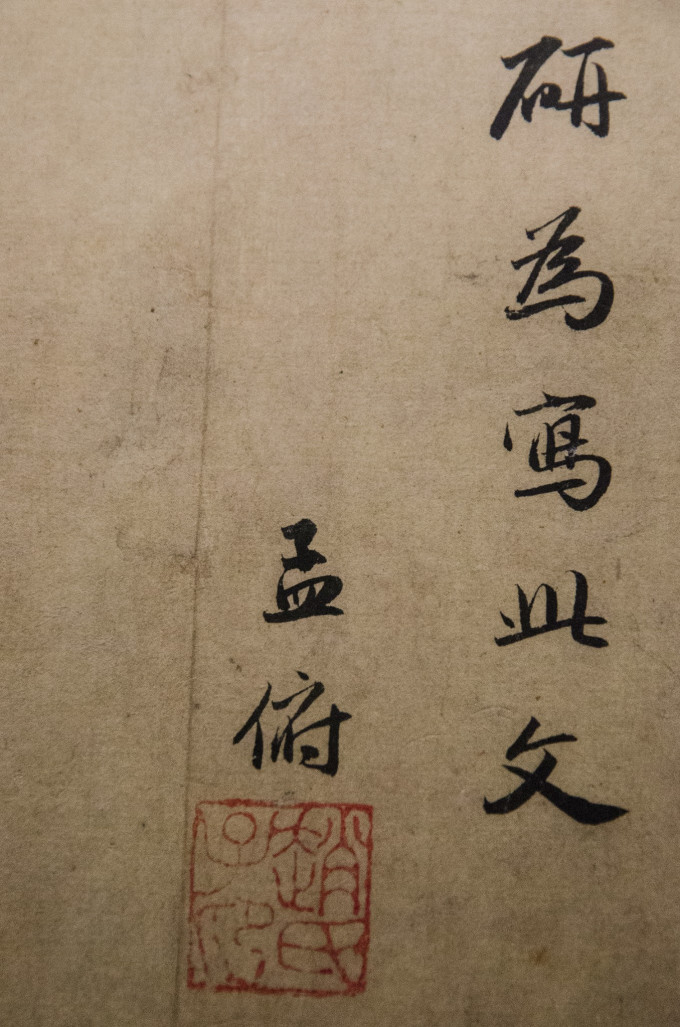 研為寫此文
孟俯
趙氏子昂